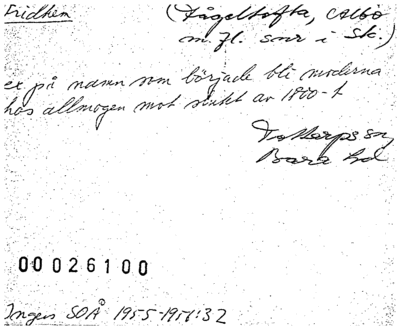 Fridhem (Fågeltofta, Albo
m.fl. snr i Sk.)
ex på namn som började bli moderna
hos allmogen mot slutet av 1800-t
Bara hd
00026100
Ingers SOÅ 1955-1956:32